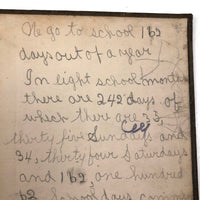 We go to school 162
days out of a year
In eight school months
there are 242 days of
which there are 35,
thirty five Sundays and
34, thirty four Saturdays
and 162, one hundred
62 school days